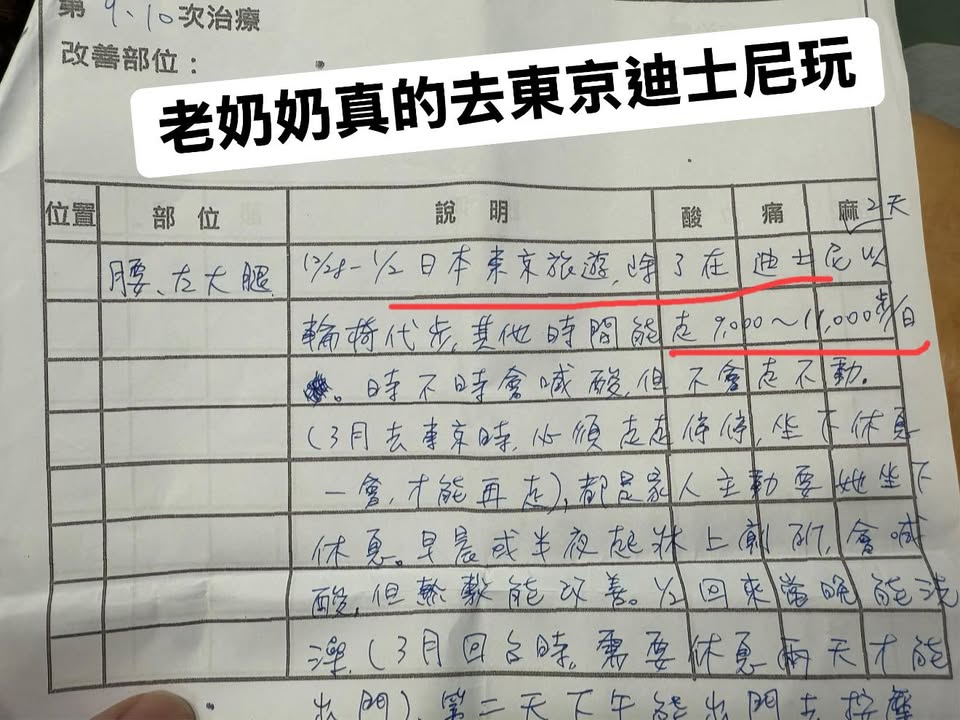 第 9、10 次治療
改善部位：
老奶奶真的去東京迪士尼玩
位置 部位 說明 酸 痛 麻 2天
腰、左大腿 12/28-1/2日本東京旅遊,除了在迪士尼以
輪椅代步,其他時間能走9,000~11,000步/日
。時不時會喊酸,但不會走不動.
(3月去東京時,必須走走停停,坐下休息
一會,才能再走),都是家人主動要她坐下
休息。早晨或半夜起床上廁所,會喊
酸,但熱敷能改善。1/2回來當晚能洗
澡.(3月回台時,需要休息兩天才能
出門).第二天下午能出門去按摩